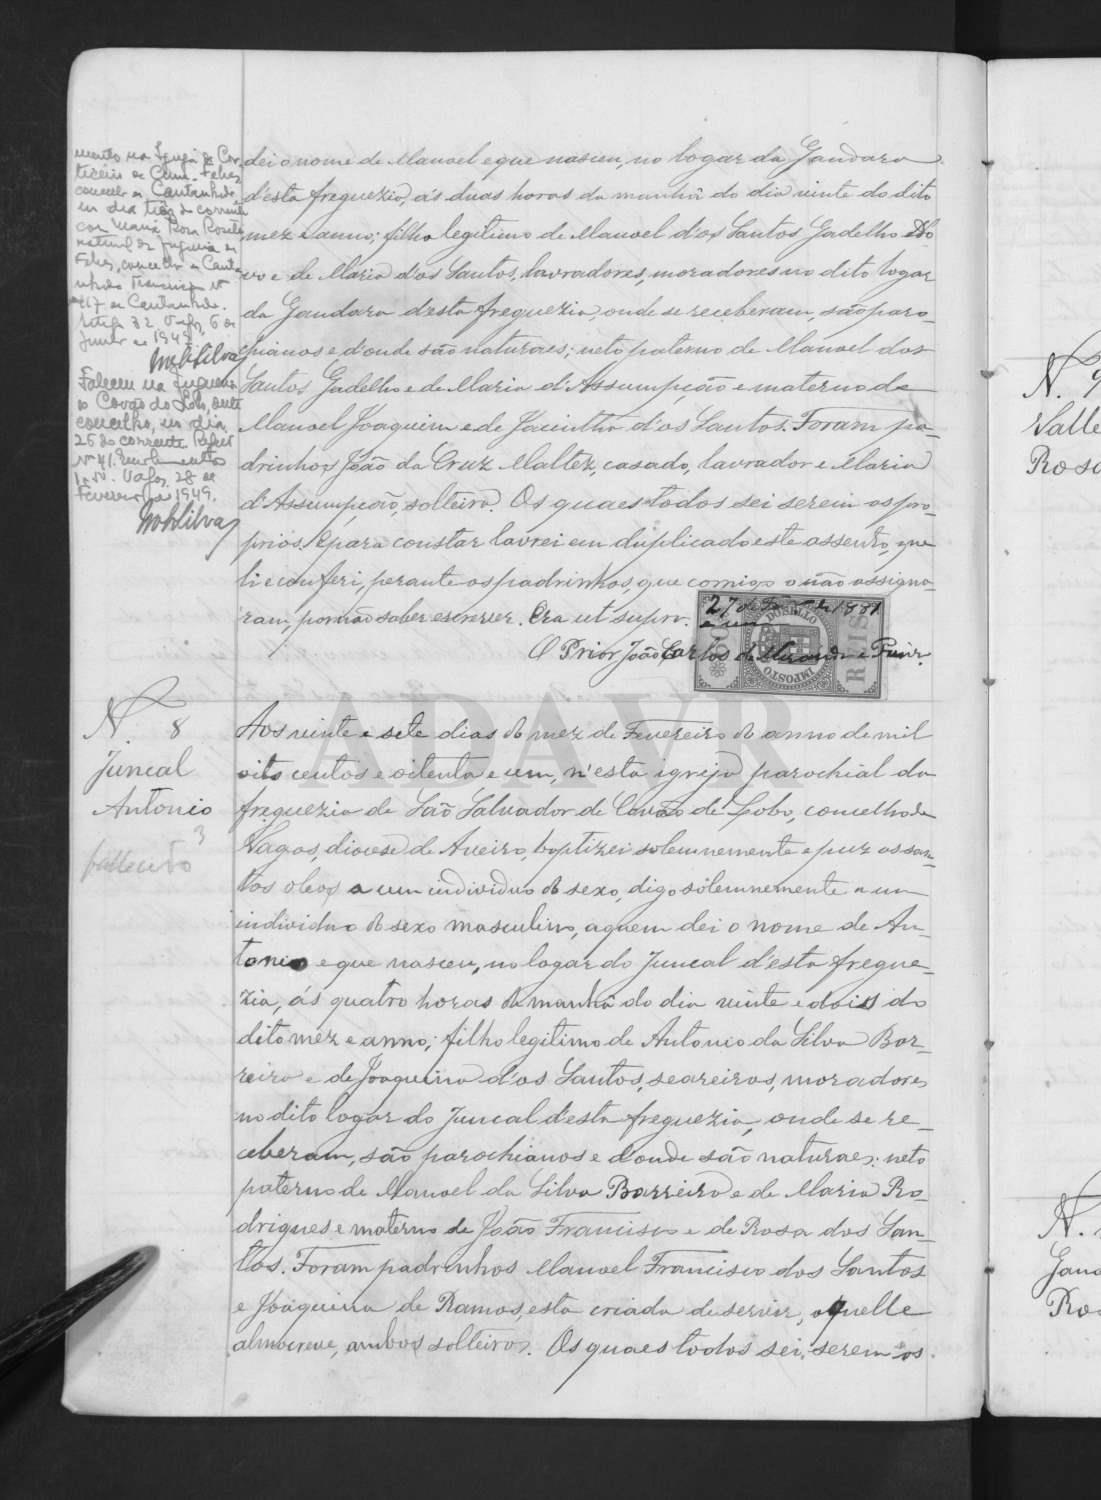 mento na Igreja de Cor
ticeiro de Cima - Febres
concelho de Cantanhede
em dia três do corrente
com Maria Rosa
natural da freguesia de
Febres, concelho de Canta
nhede
417 de Cantanhede.
32 Vagos, 6 de
Junho de 1942.
MohSilva
Faleceu na freguesia
do Covão do Lobo, deste
concelho, no dia
25 do corrente
Nº 41.
Vagos, 28 de
Fevereiro 1949.
MohSilva
dei o nome de Manoel e que nasceu, no logar da Gandara
d'esta freguezia, ás duas horas da manhã do dia vinte do dito
mez e anno; filho legitimo de Manoel d'os Santos Gadelho No
vo e de Maria d'os Santos, lavradores, moradores no dito logar
da Gandara d'esta freguezia, onde se receberam, são paro-
chianos e d'onde são naturaes; neto paterno de Manoel dos
Santos Gadelho e de Maria d'Assumpção e materno de
Manoel Joaquim e de Jacintha d'os Santos. Foram pa-
drinhos João da Cruz Maltez, casado, lavrador e Maria
d'Assumpção, solteira. Os quaes todos sei serem os pro-
prios. E para constar lavrei em duplicado este assento, que
li e conferi, perante os padrinhos, que comigo o não assigna-
ram, por não saber escrever. Era ut supra.
27 de Fev de 1881
DO SELLO
IMPOSTO
REIS
O Prior João Carlos de Miranda e
N. 8
Juncal
Antonio
3
falleceu
Aos vinte e sete dias do mez de Fevereiro do anno de mil
oito centos e oitenta e um, n'esta igreja parochial da
freguezia de São Salvador de Covão de Lobo, concelho de
Vagos, diocese de Aveiro, baptizei solemnemente e puz os san-
tos oleos a um individuo do sexo, digo solemnemente a um
individuo do sexo masculino, a quem dei o nome de An-
tonio e que nasceu, no logar do Juncal d'esta fregue-
zia, ás quatro horas da manhã do dia vinte e dois do
dito mez e anno; filho legitimo de Antonio da Silva Bar-
reiro e de Joaquina d'os Santos, seareiros, moradores
no dito logar do Juncal d'esta freguezia, onde se re-
ceberam, são parochianos e d'onde são naturaes; neto
paterno de Manoel da Silva Barreiro e de Maria Ro-
drigues e materno de João Francisco e de Rosa dos San-
tos. Foram padrinhos Manoel Francisco dos Santos
e Joaquina de Ramos, esta criada de servir, aquelle
almocreve, ambos solteiros. Os quaes todos sei serem os
ADAVR
N. 9
Valle
Rosa
N.
Gand
Ros